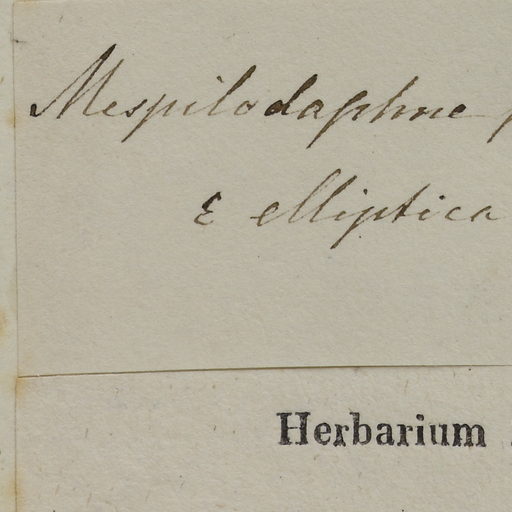 Mespilodaphne
ε elliptica
Herbarium